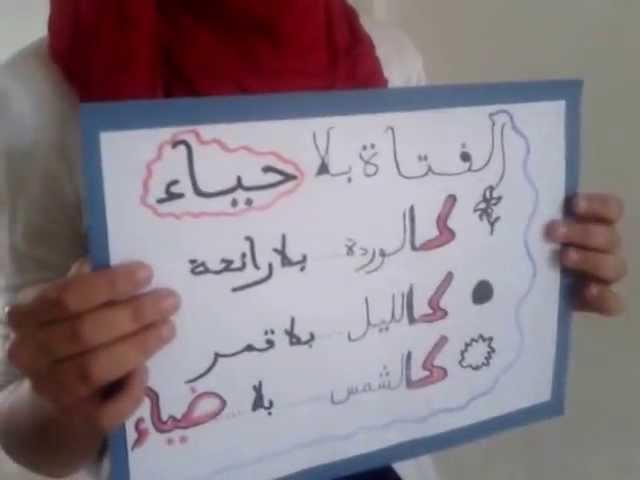 الفتاة بلا حياء
كالوردة بلا رائحة
كالليل بلا قمر
كالشمس بلا ضياء